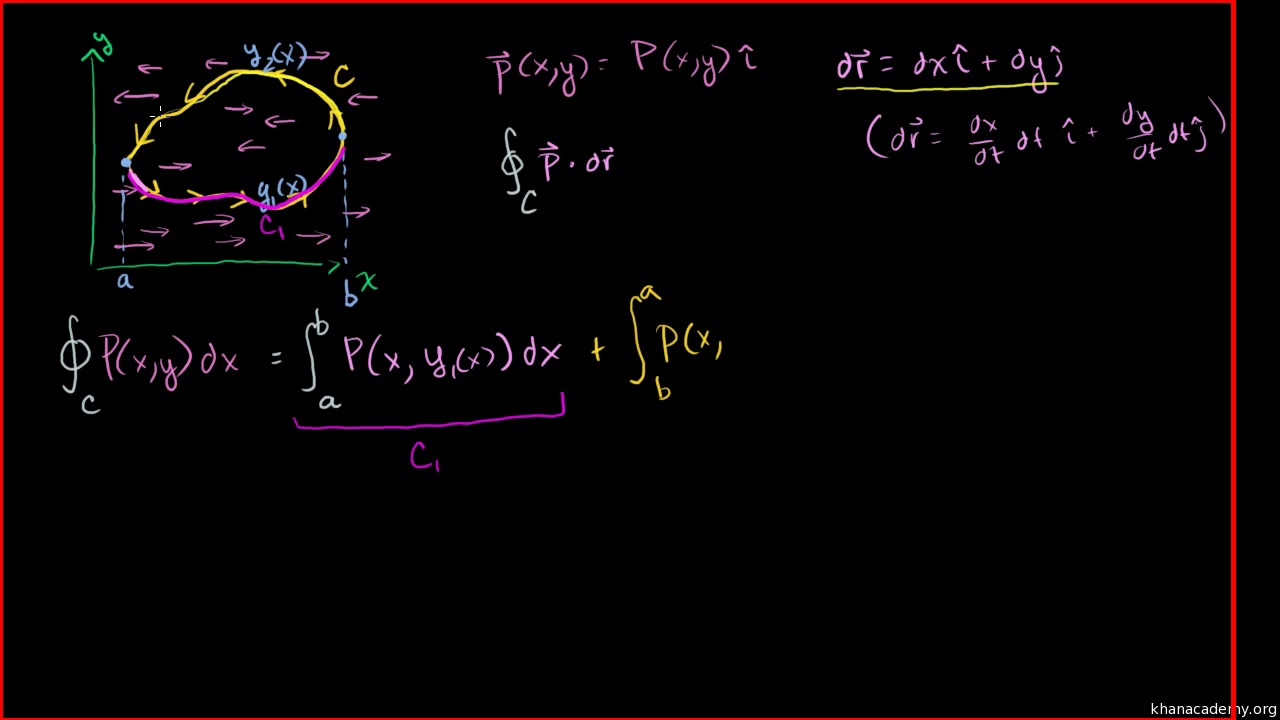 y
y₂(x)
C
y₁(x)
C₁
a
b
x
P⃗(x,y) = P(x,y) î
dr⃗ = dx î + dy ĵ
(dr⃗ = dx/dt dt î + dy/dt dt ĵ)
∮_C P⃗ · dr⃗
∮_C P(x,y) dx = ∫_a^b P(x, y₁(x)) dx + ∫_b^a P(x,
C₁
khanacademy.org